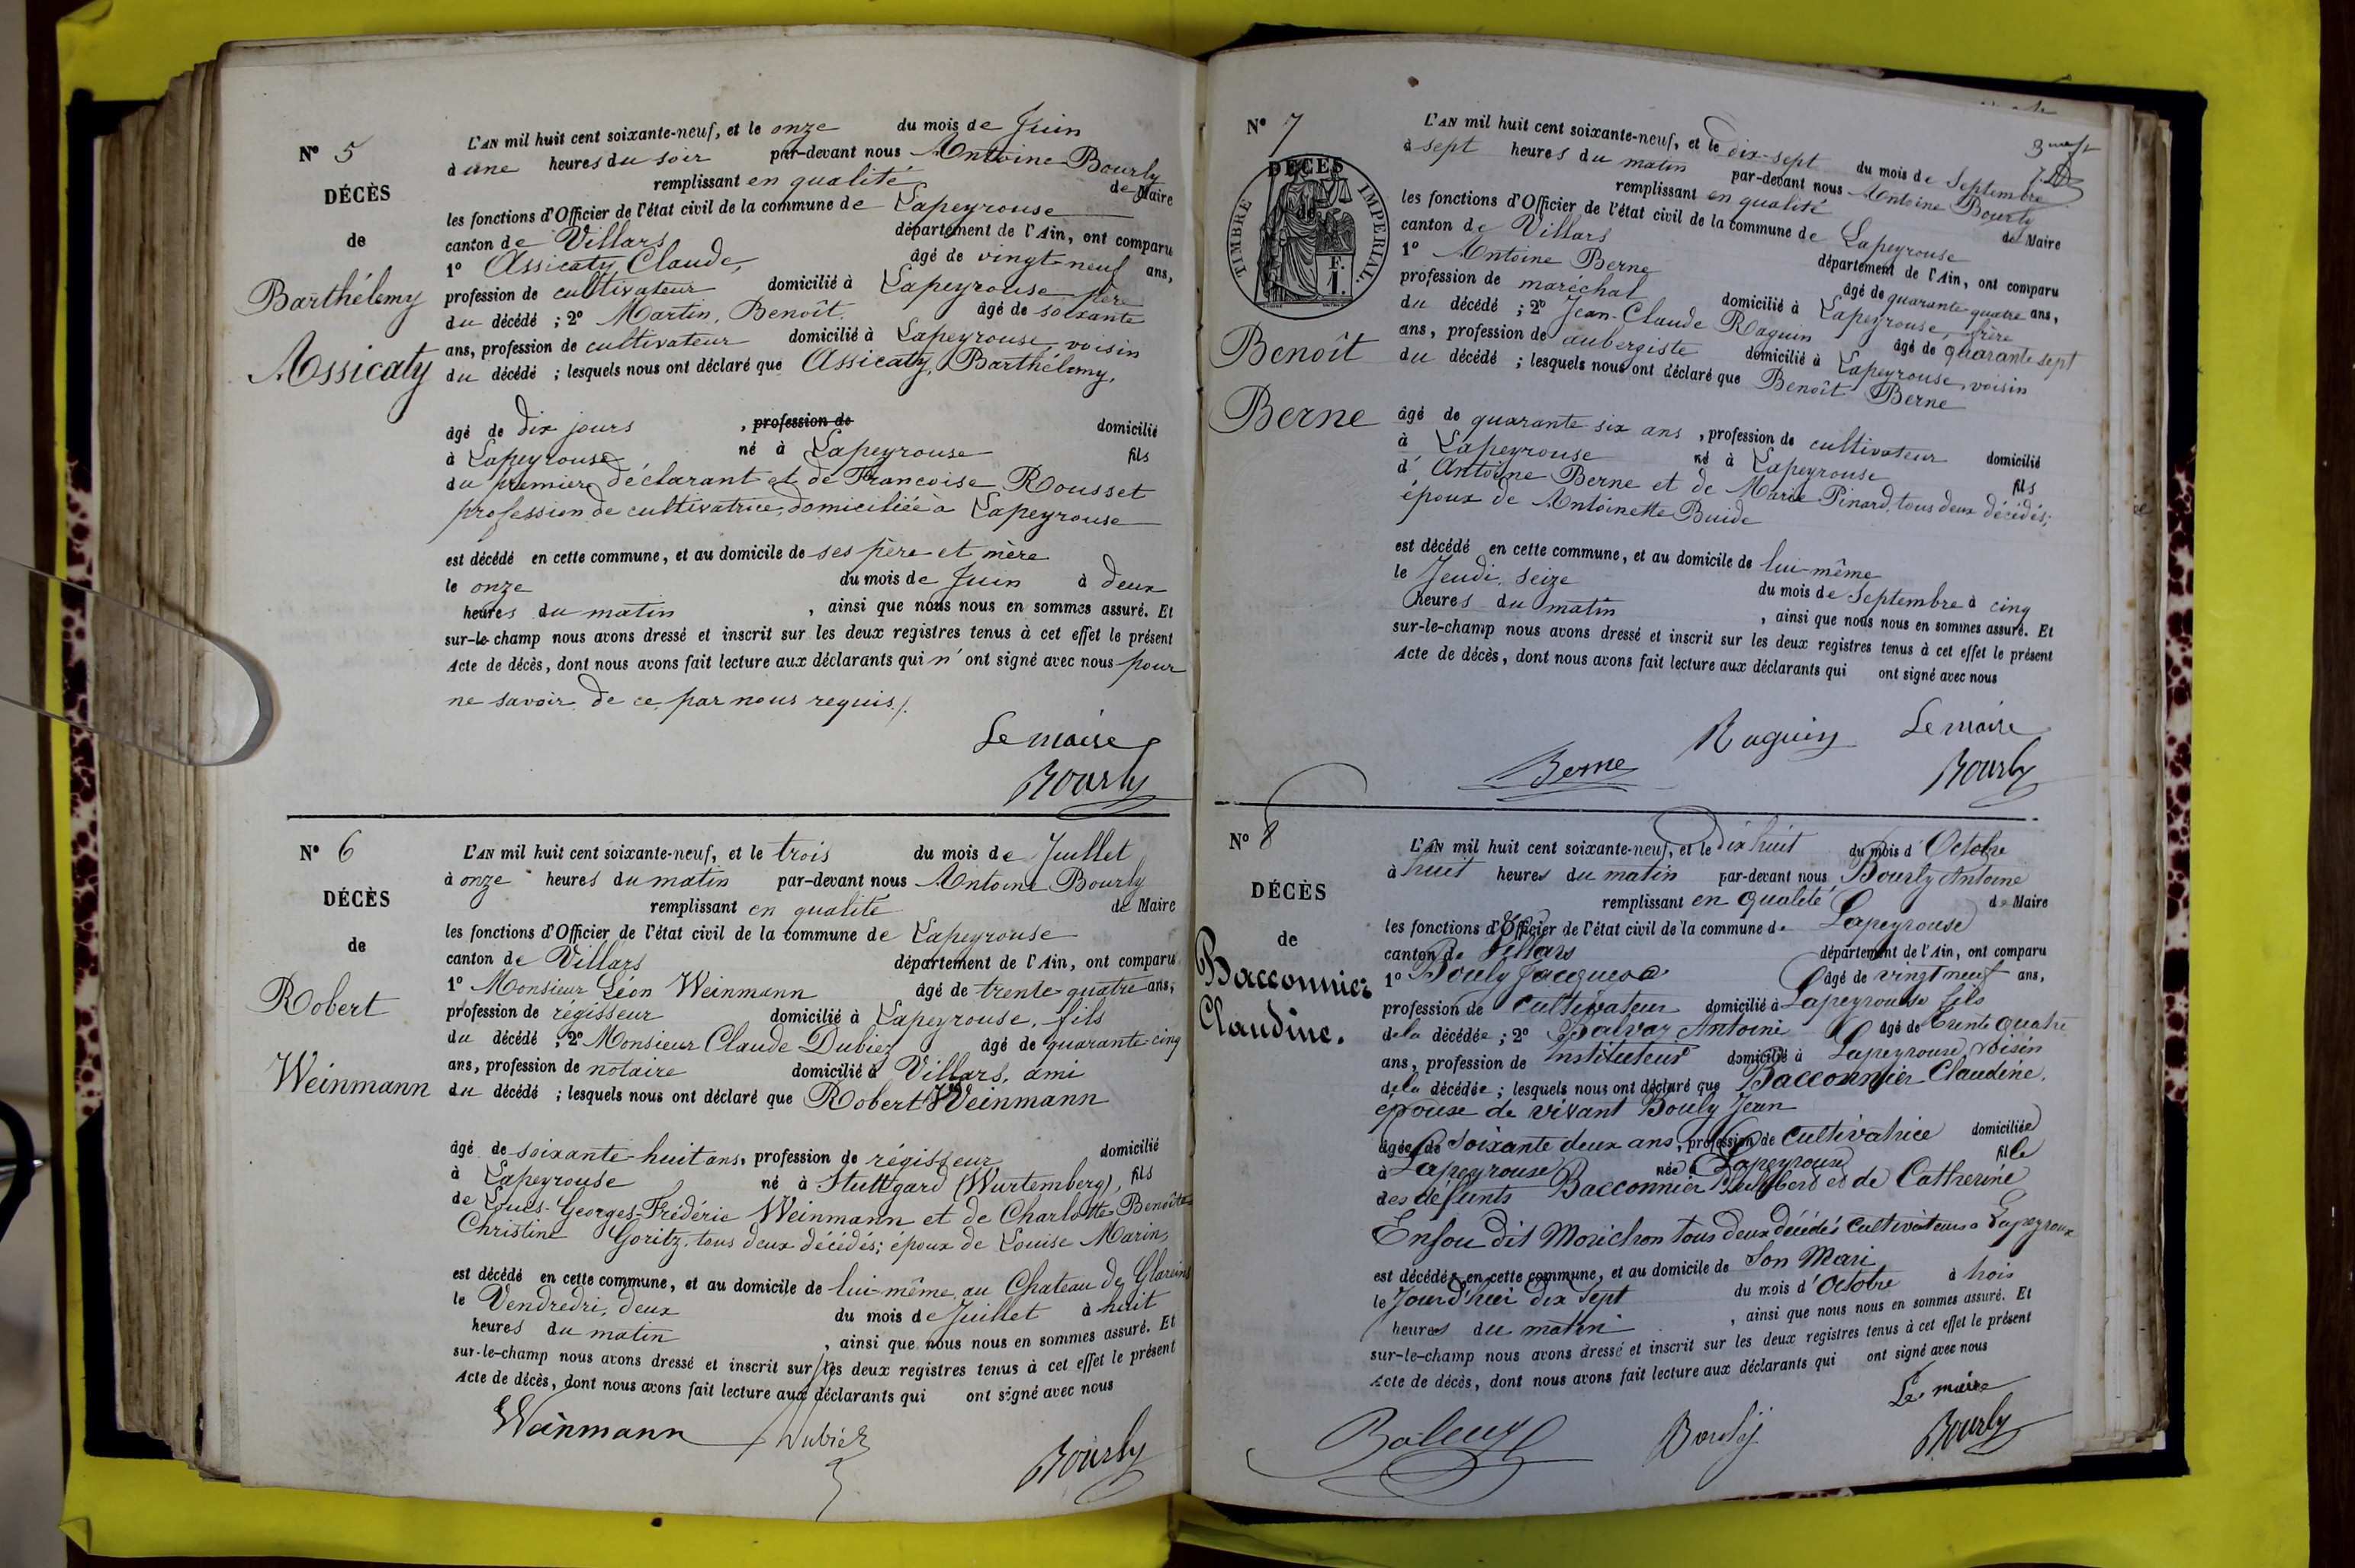 N° 5
DÉCÈS
de
Barthélemy
Assicaty
L'AN mil huit cent soixante-neuf, et le onze du mois de Juin
à une heures du soir par-devant nous Antoine Bourly
remplissant en qualité de Maire
les fonctions d'Officier de l'état civil de la commune de Lapeyrouse
canton de Villars département de l'Ain, ont comparu
1° Assicaty, Claude, âgé de vingt-neuf ans,
profession de cultivateur domicilié à Lapeyrouse père
du décédé ; 2° Martin, Benoît. âgé de soixante
ans, profession de cultivateur domicilié à Lapeyrouse, voisin
du décédé ; lesquels nous ont déclaré que Assicaty, Barthélemy,
âgé de dix jours , profession de domicilié
à Lapeyrouse né à Lapeyrouse fils
du premier déclarant et de Francoise Rousset
profession de cultivatrice, domiciliée à Lapeyrouse
est décédé en cette commune, et au domicile de ses père et mère
le onze du mois de Juin à deux
heures du matin , ainsi que nous nous en sommes assuré. Et
sur-le-champ nous avons dressé et inscrit sur les deux registres tenus à cet effet le présent
Acte de décès, dont nous avons fait lecture aux déclarants qui n'ont signé avec nous pour
ne savoir de ce par nous requis./.
Le maire
Bourly
N° 6
DÉCÈS
de
Robert
Weinmann
L'AN mil huit cent soixante-neuf, et le trois du mois de Juillet
à onze heures du matin par-devant nous Antoine Bourly
remplissant en qualité de Maire
les fonctions d'Officier de l'état civil de la commune de Lapeyrouse
canton de Villars département de l'Ain, ont comparu
1° Monsieur Léon Weinmann âgé de trente-quatre ans,
profession de régisseur domicilié à Lapeyrouse, fils
du décédé ; 2° Monsieur Claude Dubiez âgé de quarante-cinq
ans, profession de notaire domicilié à Villars, ami
du décédé ; lesquels nous ont déclaré que Robert Weinmann
âgé de soixante-huit ans, profession de régisseur domicilié
à Lapeyrouse né à Stuttgard (Wurtemberg), fils
de Louis-Georges-Frédéric Weinmann et de Charlotte-Benoîte
Christine Goritz, tous deux décédés; époux de Louise Marin,
est décédé en cette commune, et au domicile de lui-même au Chateau de Glareins
le Vendredri, deux du mois de Juillet à huit
heures du matin , ainsi que nous nous en sommes assuré. Et
sur-le-champ nous avons dressé et inscrit sur les deux registres tenus à cet effet le présent
Acte de décès, dont nous avons fait lecture aux déclarants qui ont signé avec nous
Weinmann Dubiez
Bourly
N° 7
DÉCÈS
de
TIMBRE IMPERIAL.
F.
1.
Benoît
Berne
L'AN mil huit cent soixante-neuf, et le dix-sept du mois de Septembre
à sept heures du matin par-devant nous Antoine Bourly
remplissant en qualité de Maire
les fonctions d'Officier de l'état civil de la commune de Lapeyrouse
canton de Villars département de l'Ain, ont comparu
1° Antoine Berne âgé de quarante-quatre ans,
profession de maréchal domicilié à Lapeyrouse, frère
du décédé ; 2° Jean-Claude Raguin âgé de quarante sept
ans, profession de aubergiste domicilié à Lapeyrouse, voisin
du décédé ; lesquels nous ont déclaré que Benoît Berne
âgé de quarante six ans , profession de cultivateur domicilié
à Lapeyrouse né à Lapeyrouse fils
d'Antoine Berne et de Marie Pinard, tous deux décédés;
époux de Antoinette Buide
est décédé en cette commune, et au domicile de lui-même
le Jeudi, seize du mois de Septembre à cinq
heures du matin , ainsi que nous nous en sommes assuré. Et
sur-le-champ nous avons dressé et inscrit sur les deux registres tenus à cet effet le présent
Acte de décès, dont nous avons fait lecture aux déclarants qui ont signé avec nous
Raguin Le maire
Berne Bourly
N° 8
DÉCÈS
de
Bacconnier
Claudine.
L'AN mil huit cent soixante-neuf, et le dix huit du mois d'Octobre
à huit heures du matin par-devant nous Bourly Antoine
remplissant en qualité de Maire
les fonctions d'Officier de l'état civil de la commune de Lapeyrouse
canton de Villars département de l'Ain, ont comparu
1° Bouly Jacques âgé de vingt neuf ans,
profession de cultivateur domicilié à Lapeyrouse fils
de la décédée ; 2° Balvay Antoine âgé de trente quatre
ans, profession de Instituteur domicilié à Lapeyrouse voisin
de la décédée ; lesquels nous ont déclaré que Bacconnier Claudine.
épouse de vivant Bouly Jean
âgée de soixante deux ans, profession de cultivatrice domiciliée
à Lapeyrouse née Lapeyrouse fille
des défunts Bacconnier et de Catherine
Enfou dit Morichon tous deux décédés cultivateurs a Lapeyrouse
est décédée en cette commune, et au domicile de Son Mari
le Jourd'hui dix sept du mois d'Octobre à trois
heures du matin , ainsi que nous nous en sommes assuré. Et
sur-le-champ nous avons dressé et inscrit sur les deux registres tenus à cet effet le présent
Acte de décès, dont nous avons fait lecture aux déclarants qui ont signé avec nous
Le maire
Bouly Bourly